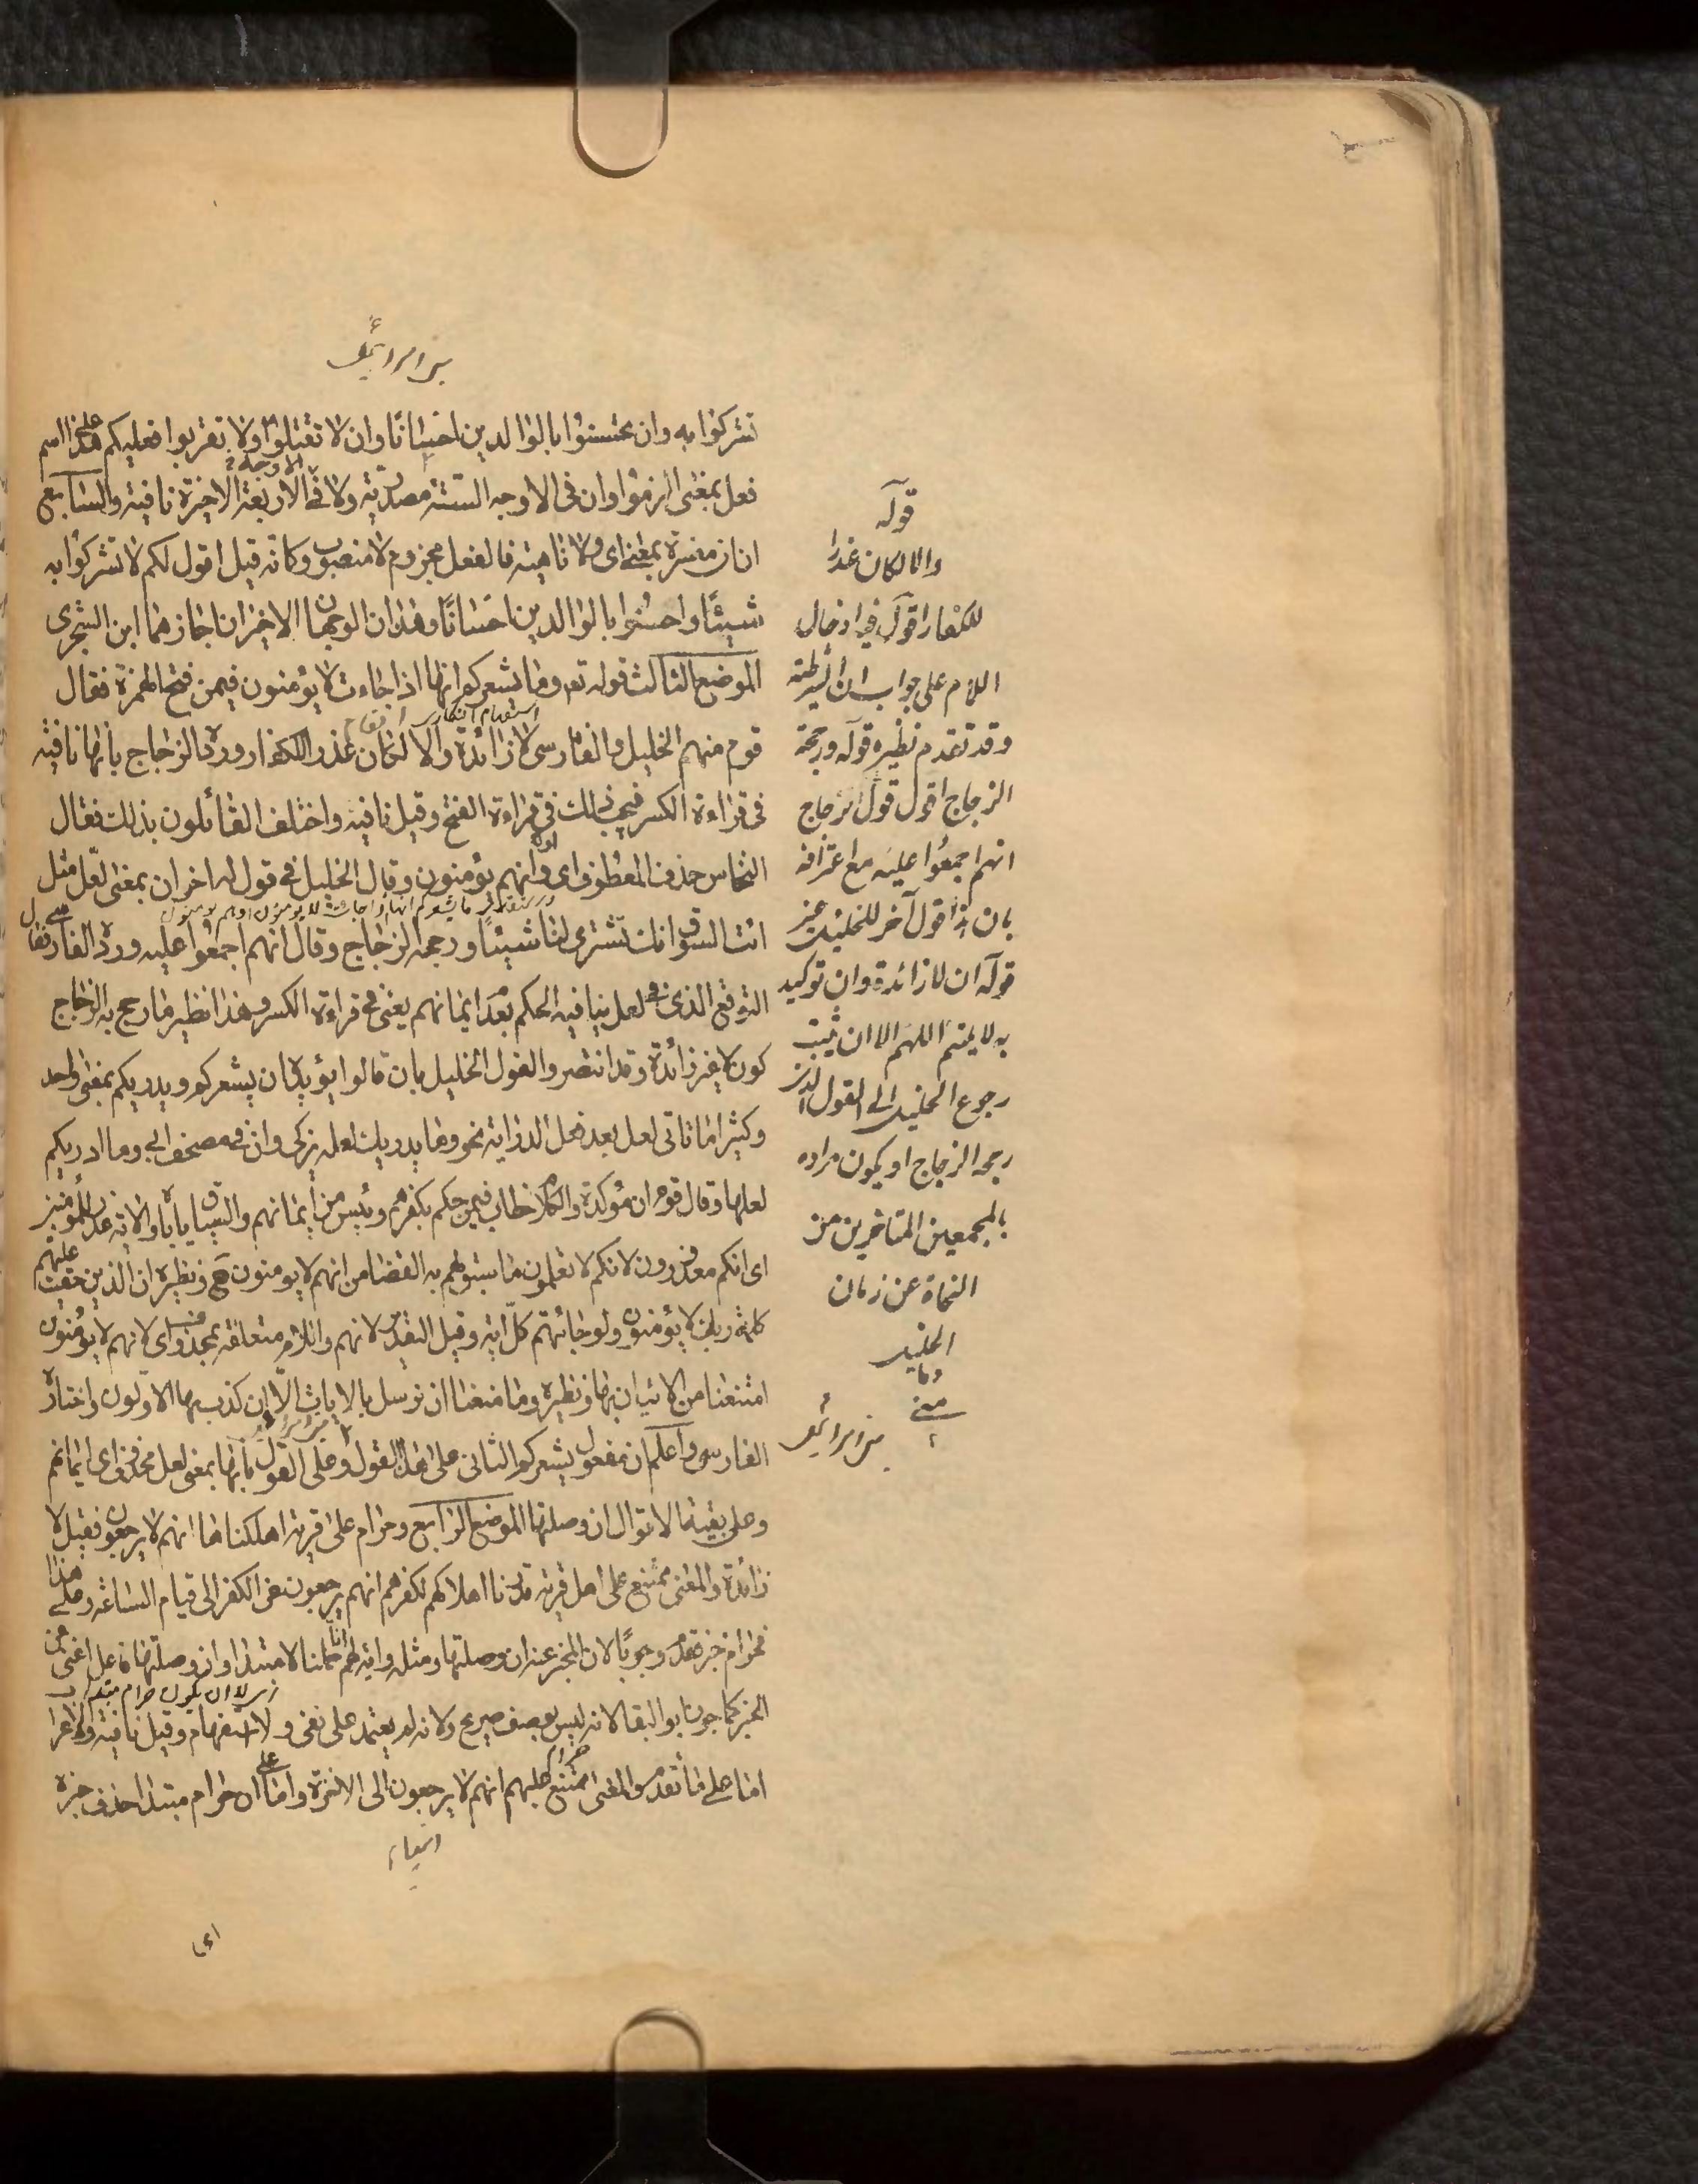 بنی اسرائیل
تشركوا به وان تحسنوا بالوالدين احسانا وان لا تقتلوا ولا تقربوا فعليكم على هذا اسم
الاوجه
فعل بمعنى الزموا وان فى الاوجه الستة مصدرية ولا فى الاربعة الاخيرة نافية والسابع
ان ان مفسرة بمعنى اى ولا ناهية فالفعل مجزوم لا منصوب وكانه قيل اقول لكم لا تشركوا به
شيئا واحسنوا بالوالدين احسانا وهذان الوجهان الاخيران اجازهما ابن الشجرى
الموضع الثالث قوله تع وما يشعركم انها اذا جاءت لا يؤمنون فيمن فتح الهمزة فقال
استفهام انكارى انعام
قوم منهم الخليل والفارسى لا زائدة والا لكان عذرا للكفار ورده الزجاج بانها نافية
فى قراءة الكسر فيجب ذلك فى قراءة الفتح وقيل نافية واختلف القائلون بذلك فقال
النحاس حذف المعطوف اى او انهم يؤمنون وقال الخليل فى قول له اخر ان بمعنى لعل مثل
ما يشعركم انها اذا جاءت لا يؤمنون او هم يؤمنون
ائت السوق انك تشترى لنا شيئا ورجحه الزجاج وقال انهم اجمعوا عليه ورده الفارسى فقال
التوقع الذى فى لعل ينافيه الحكم بعدم ايمانهم يعنى فى قراءة الكسر وهذا نظير ما رجح به الزجاج
كون لا غير زائدة وقد انتصروا لقول الخليل بان قالوا يؤيده ان يشعركم ويدريكم بمعنى واحد
وكثيرا ما تاتى لعل بعد فعل الدراية نحو وما يدريك لعله يزكى وان فى مصحف ابى وما ادريكم
لعلها وقال قوم ان مؤكدة والكلام خطاب فيمن حكم بكفرهم ويئس من ايمانهم والسياق يأباه والاية عذر للمؤمنين
اى انكم معذورون لانكم لا تعلمون ما سبق لهم به القضا من انهم لا يؤمنون ح ونظيره ان الذين حقت عليهم
كلمة ربك لا يؤمنون ولو جائتهم كل اية وقيل التقدير لانهم واللام متعلقة بمحذوف اى لانهم لا يؤمنون
امتنعنا من الاتيان بها ونظيره وما منعنا ان نرسل بالايات الا ان كذب بها الاولون واختاره
الفارسى واعلم ان مفعول يشعركم الثانى على هذا القول وعلى القول بانها بمعنى لعل محذوف اى ايمانهم
وعلى بقية الاقوال ان وصلتها الموضع الرابع وحرام على قرية اهلكناها انهم لا يرجعون فقيل لا
زائدة والمعنى ممتنع على اهل قرية قدرنا اهلاكهم لكفرهم انهم يرجعون عن الكفر الى قيام الساعة وعلى هذا
فحرام خبر مقدم وجوبا لان المخبر عنه ان وصلتها ومثله واية لهم انا حملنا لا مبتدا وان وصلتها فاعل اغنى عن
الخبر كما جوز ابو البقا لانه ليس بوصف صريح ولانه لم يعتمد على نفى ولا استفهام وقيل نافية والاعراب
اما على ما تقدم والمعنى ممتنع عليهم انهم لا يرجعون الى الاخرة واما على ان حرام مبتدا حذف خبره
انبياء
اى
قوله
والا لكان عذرا
للكفار اقول فيه ادخال
اللام على جواب ان الشرطية
وقد تقدم نظيره قوله ورجحه
الزجاج اقول قول الزجاج
انهم اجمعوا عليه مع اعترافه
بان هذا قول آخر للخليل غير
قوله ان لا زائدة وان توكيد
به لا يتم اللهم الا ان يثبت
رجوع الخليل الى القول الذى
رجحه الزجاج او يكون مراده
بالمجمعين المتاخرين من
النحاة عن زمان
الخليل
بنی اسرائیل